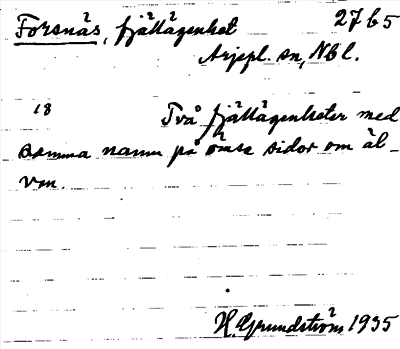 Forsnäs, fjällägenhet 27 b 5
Arjepl. sn, Nbl.
18 Två fjällägenheter med
samma namn på ömse sidor om äl-
ven.
H. Grundström 1935